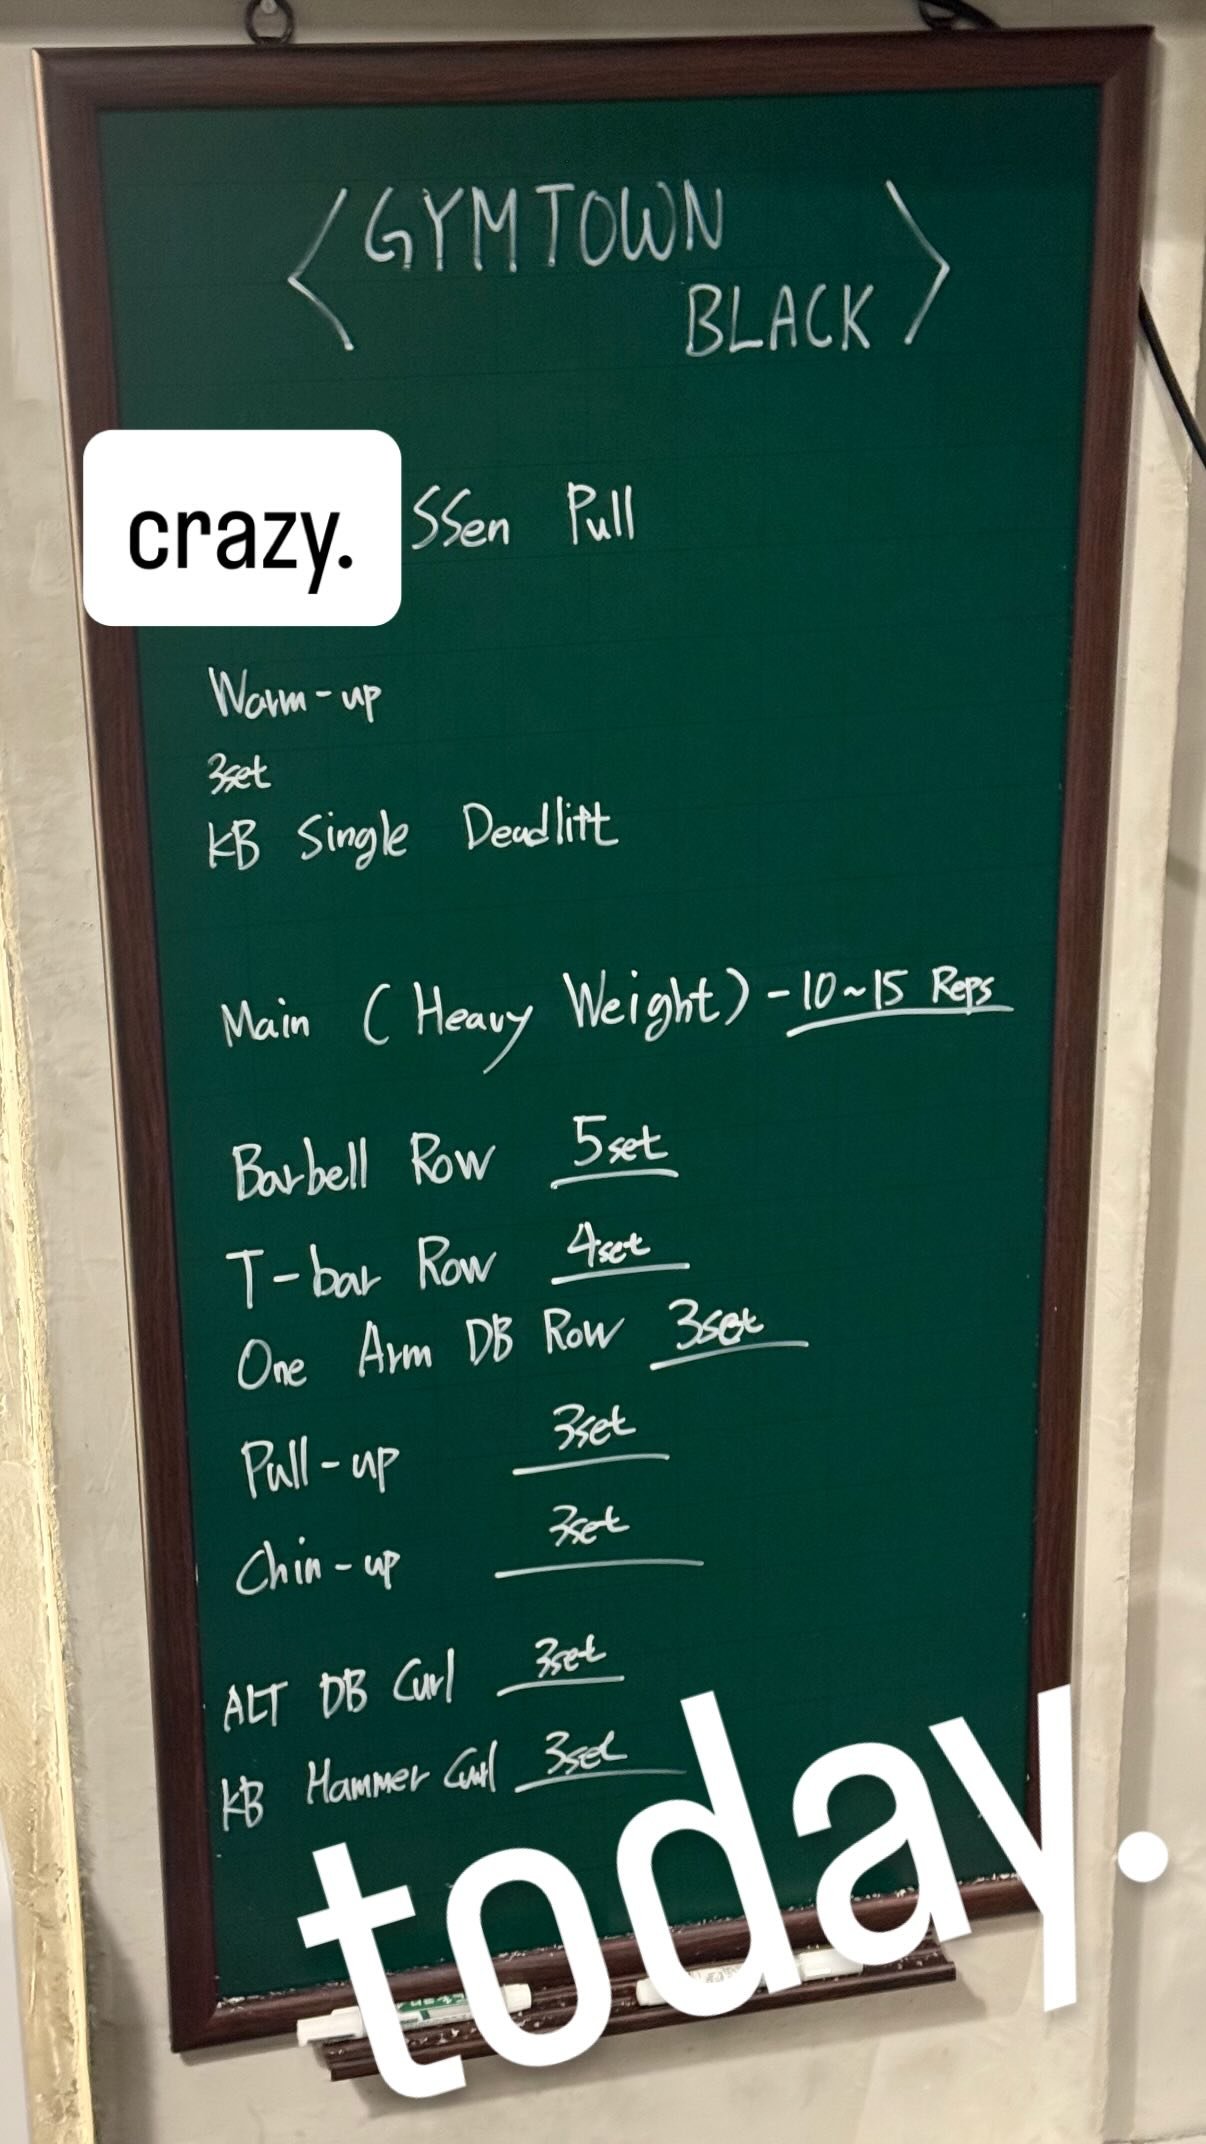 GYMTOWN
BLACK
crazy. SSen Pull
Warm-up
3set
KB Single Deadlift
Main (Heavy Weight) - 10~15 Reps
Barbell Row 5set
T-bar Row 4set
One Arm DB Row 3set
Pull-up 3set
Chin-up 3set
ALT DB Curl 3set
KB Hammer Curl 3set
today.